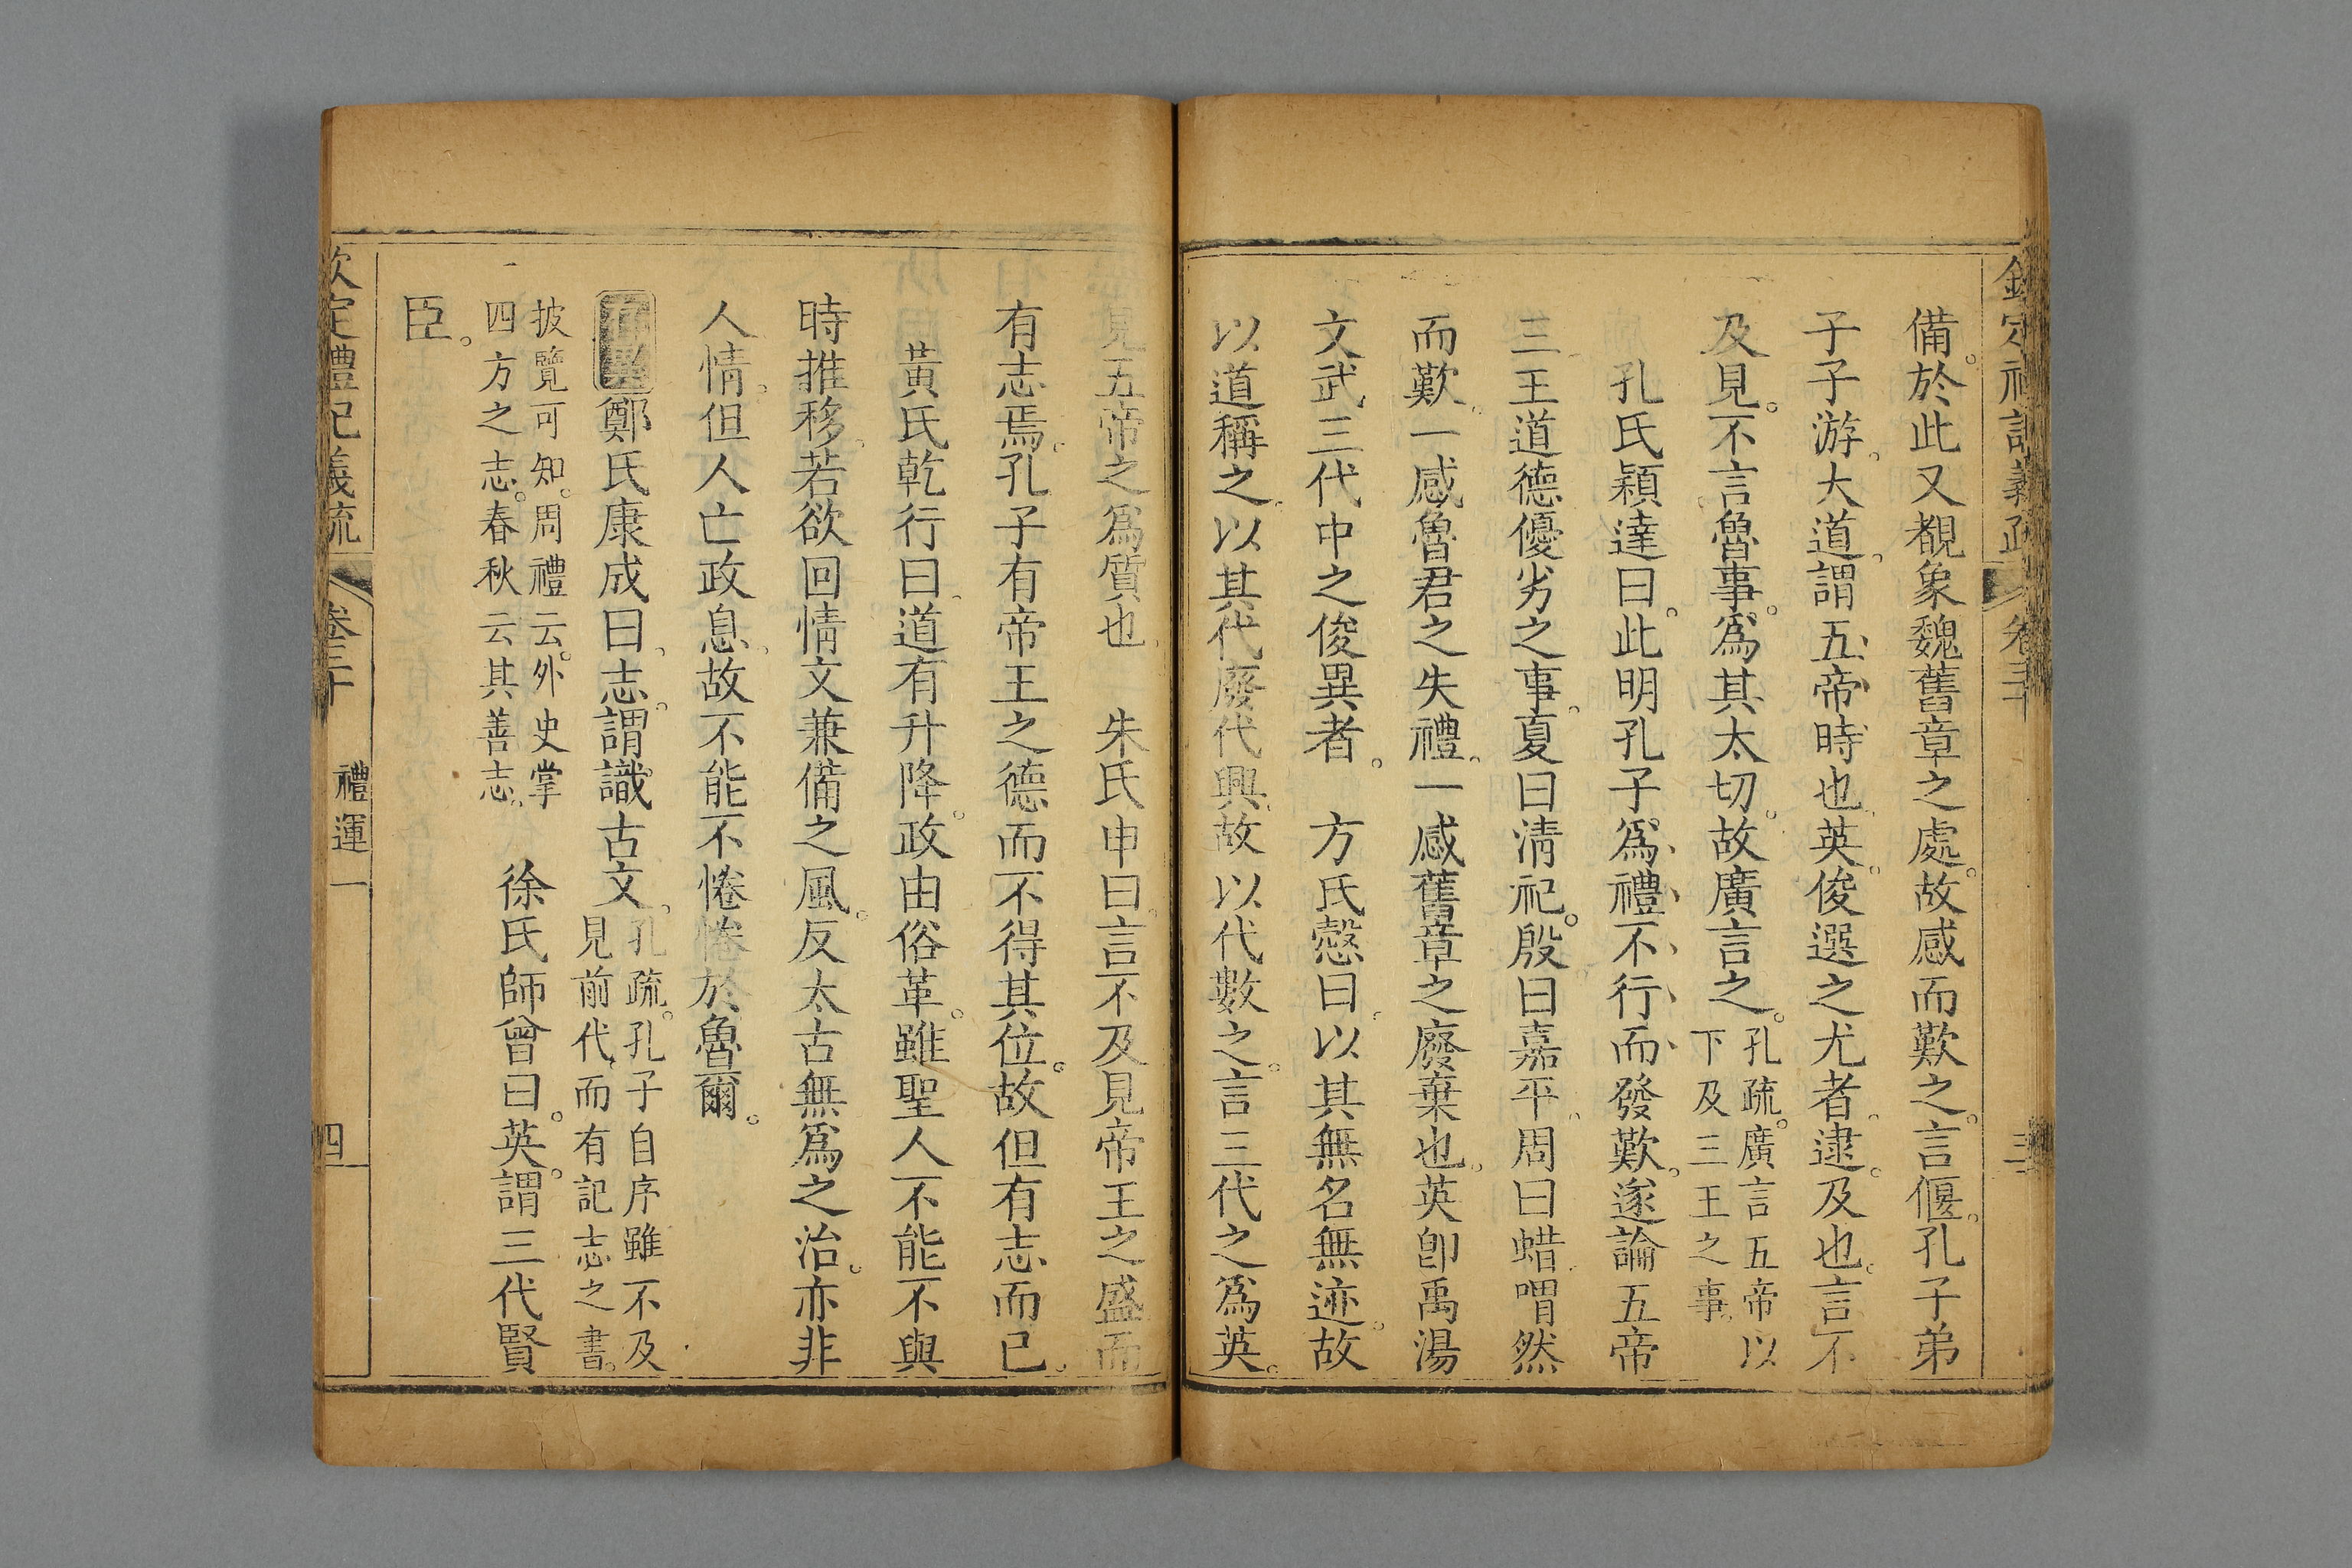 欽定禮記義疏 卷三十 三
備於此又覩象魏舊章之處故感而歎之言偃孔子弟
子子游大道謂五帝時也英俊選之尤者逮及也言不
及見不言魯事爲其太切故廣言之
孔疏廣言五帝以
下及三王之事
孔氏穎達曰此明孔子爲禮不行而發歎遂論五帝
三王道德優劣之事夏曰清祀殷曰嘉平周曰蜡喟然
而歎一感魯君之失禮一感舊章之廢棄也英卽禹湯
文武三代中之俊異者 方氏慤曰以其無名無迹故
以道稱之以其代廢代興故以代數之言三代之爲英
見五帝之爲質也 朱氏申曰言不及見帝王之盛而
有志焉孔子有帝王之德而不得其位故但有志而已
黃氏乾行曰道有升降政由俗革雖聖人不能不與
時推移若欲回情文兼備之風反太古無爲之治亦非
人情但人亡政息故不能不惓惓於魯爾
鄭氏康成曰志謂識古文
孔疏孔子自序雖不及
見前代而有記志之書
披覽可知周禮云外史掌
四方之志春秋云其善志
徐氏師曾曰英謂三代賢
臣
欽定禮記義疏 卷三十 禮運一 四